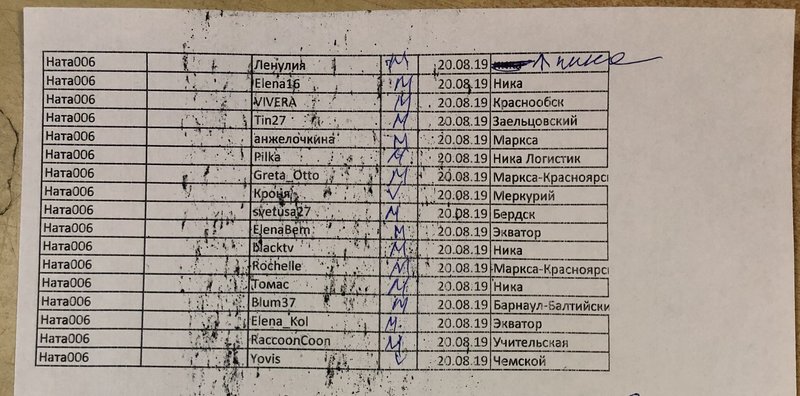 Ната006 Ленулия м 20.08.19 Ника
Ната006 Elena16 м 20.08.19 Ника
Ната006 VIVERA м 20.08.19 Краснообск
Ната006 Tin27 м 20.08.19 Заельцовский
Ната006 анжелочкина м 20.08.19 Маркса
Ната006 Pilka м 20.08.19 Ника Логистик
Ната006 Greta_Otto м 20.08.19 Маркса-Красноярс
Ната006 Кроня 20.08.19 Меркурий
Ната006 svetusa27 м 20.08.19 Бердск
Ната006 ElenaBem м 20.08.19 Экватор
Ната006 blacktv м 20.08.19 Ника
Ната006 Rochelle м 20.08.19 Маркса-Красноярс
Ната006 Томас м 20.08.19 Ника
Ната006 Blum37 м 20.08.19 Барнаул-Балтийски
Ната006 Elena_Kol м 20.08.19 Экватор
Ната006 RaccoonCoon м 20.08.19 Учительская
Ната006 Yovis 20.08.19 Чемской